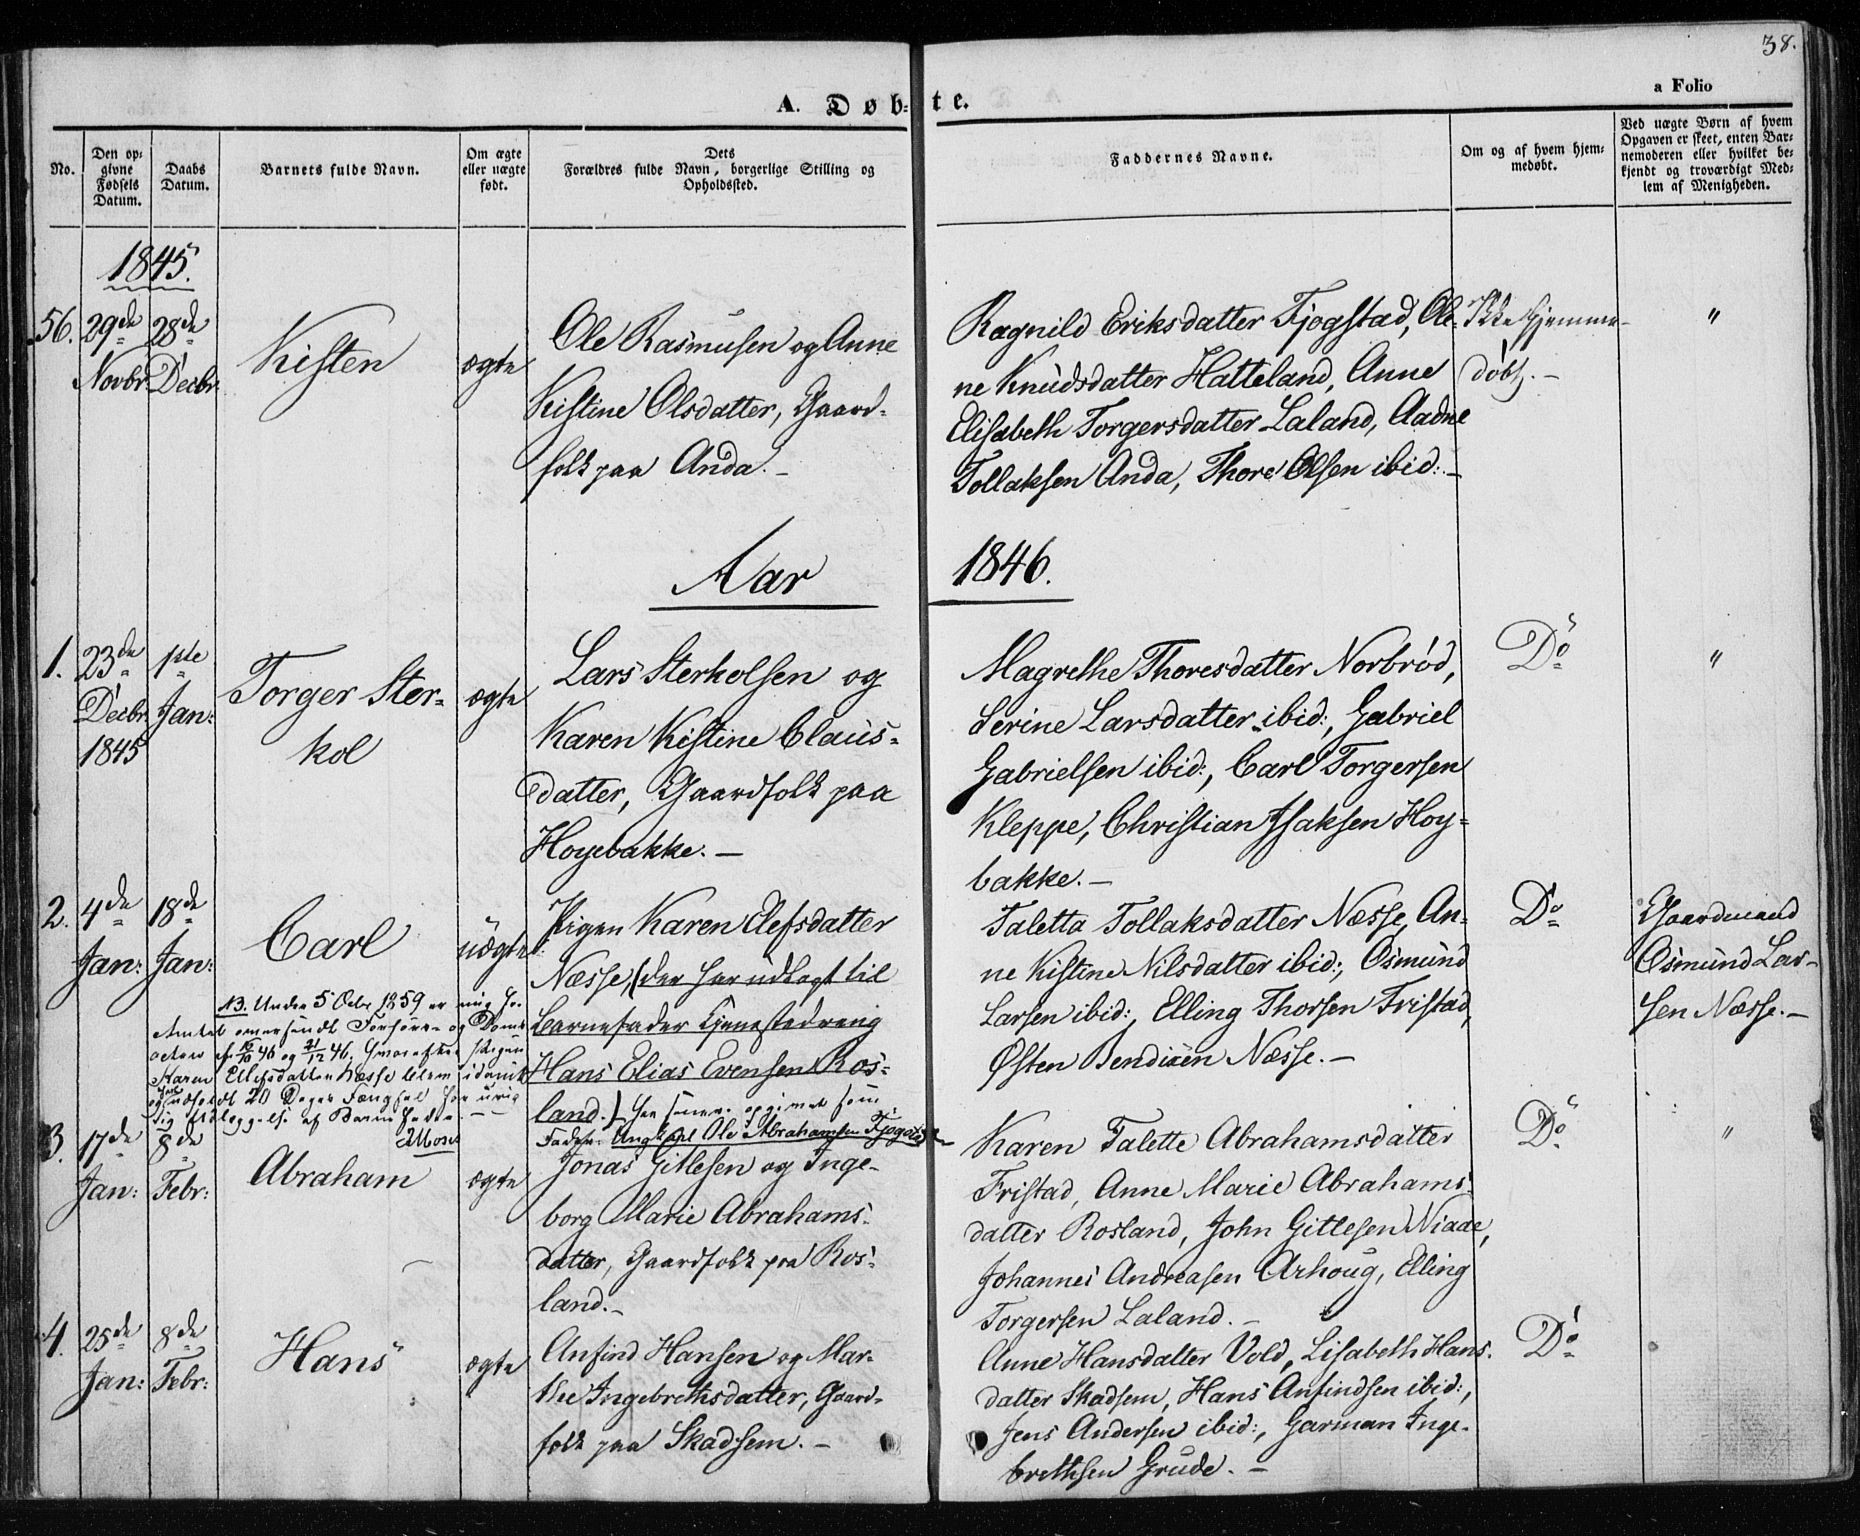 38.
a Folio
A. Døb-te.
No.
Den op-
givne
Fødsels
Datum.
Daabs
Datum.
Barnets fulde Navn.
Om ægte
eller uægte
født.
Dets
Forældres fulde Navn, borgerlige Stilling og
Opholdssted.
Faddernes Navne.
Om og af hvem hjem-
medøbt.
Ved uægte Børn af hvem
Opgaven er skeet, enten Bar-
nemoderen eller hvilket be-
kjendt og troværdigt Med-
lem af Menigheden.
1845.
56.
29de
Novbr.
28de
Decbr.
Kisten
ægte
Ole Rasmusen og Anne
Kistine Olsdatter, Gaard-
folk paa Anda.-
Ragnild Eriksdatter Fjogstad, Ole-
ne Knudsdatter Hatteland, Anne
Elisabeth Torgersdatter Laland, Aadne
Tollaksen Anda, Thore Olsen ibid:-
Ikke hjemme-
døbt.-
"
Aar 1846.
1.
23de
Decbr.
1845
1ste
Jan:
Torger Ster-
kol
ægte
Lars Sterkolsen og
Karen Kistine Claus-
datter, Gaardfolk paa
Hoyebakke.-
Magrethe Thoresdatter Norbrød,
Serine Larsdatter ibid:, Gabriel
Gabrielsen ibid:, Carl Torgersen
Kleppe, Christian Isaksen Hoy-
bakke.-
Do
"
2.
4de
Jan:
18de
Jan:
Carl
uægte
Pigen Karen Elefsdatter
Næsse, (der har udlagt til
Barnefader Tjenestedreng
Hans Elias Evensen Ros-
land.) Har senere opgivet som
Fader: Ungkarl Ole Abrahamsen Fjogstad
NB. Under 5 Octbr 1859 er mig fra
Amtet oversendt Forhørs- og Doms
acten af 16/10 46 og 21/12 46, hvorefter Pigen
Karen Ellefsdatter Næsse blev idømt
og har udholdt 20 Dages Fængsel for urig
tig Udlæggelse af Barnefader.-
Taletta Tollaksdatter Næsse, An-
ne Kistine Nilsdatter ibid:, Osmund
Larsen ibid:, Elling Thorsen Fristad,
Østen Bendixen Næsse.-
Do
Gaardmand
Osmund Lar-
sen Næsse.-
3.
17de
Jan:
8de
Febr:
Abraham
ægte
Jonas Gitlesen og Inge-
borg Marie Abrahams-
datter, Gaardfolk paa Ros-
land.-
Karen Talette Abrahamsdatter
Fristad, Anne Marie Abrahams-
datter Rosland, John Gitlesen Niaae,
Johannes Andreasen Arhoug, Elling
Torgersen Laland.-
Do
"
4.
25de
Jan:
8de
Febr:
Hans
ægte
Anfind Hansen og Mar-
the Ingebrethsdatter, Gaard-
folk paa Skadsem.-
Anne Hansdatter Vold, Lisabeth Hans-
datter Skadsem, Hans Anfindsen ibid:,
Jens Andersen ibid:, Garman Inge-
brethsen Grude.-
Do